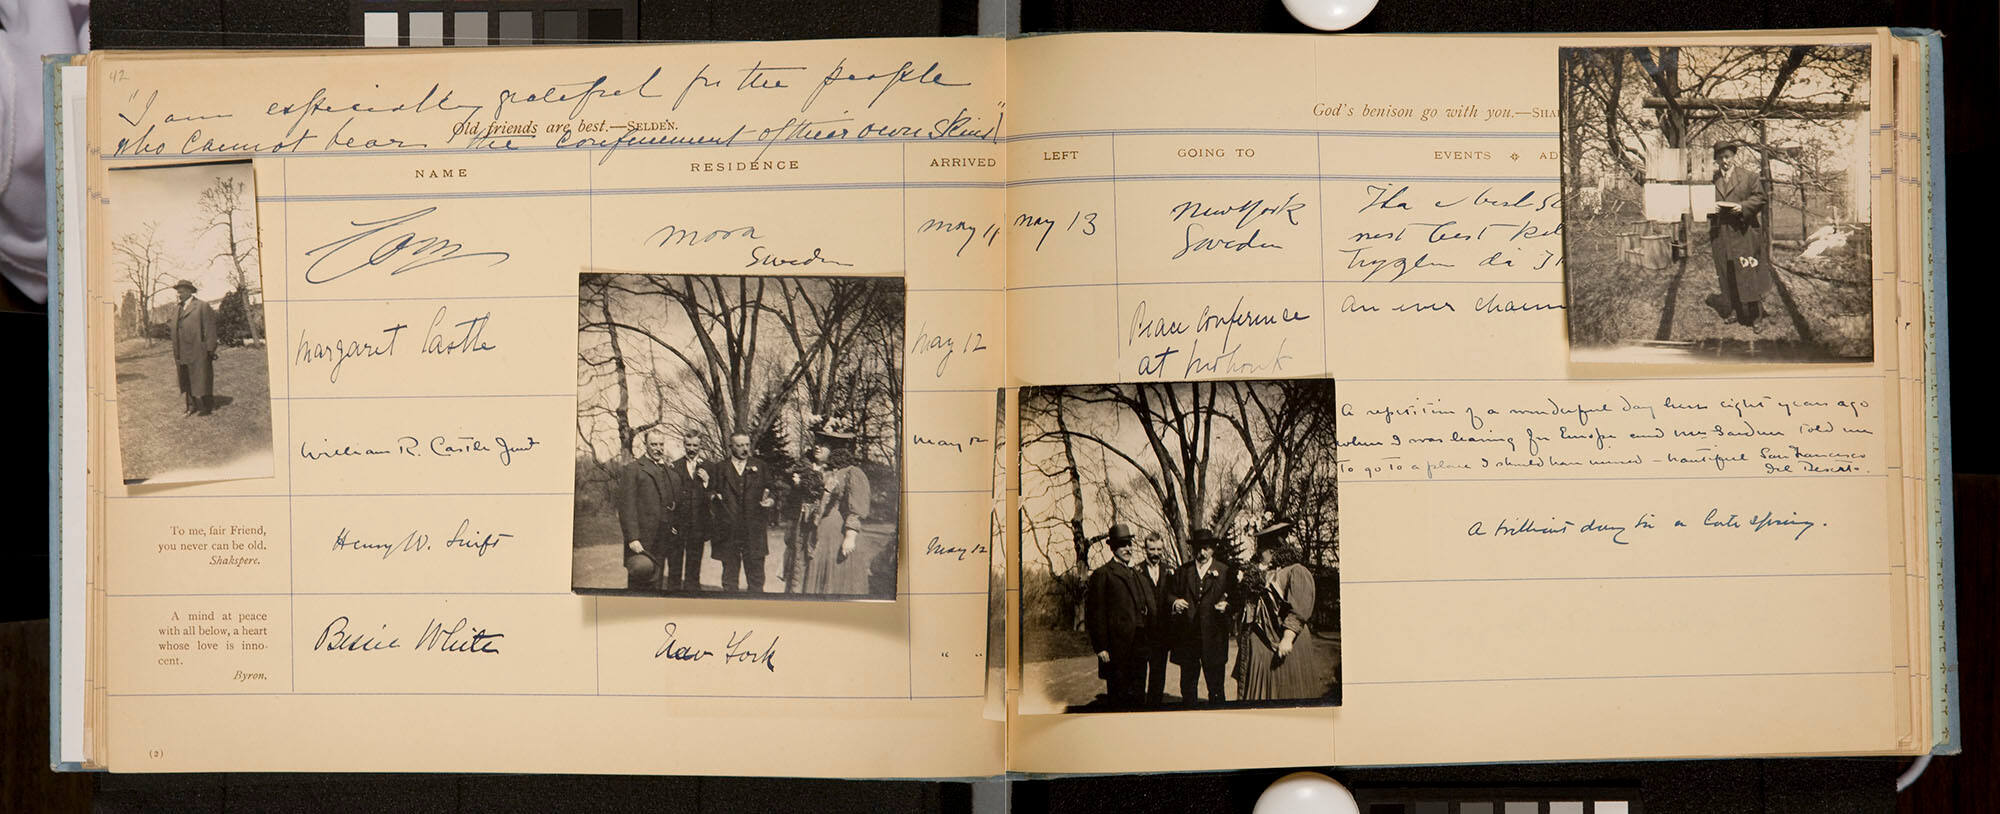 42
"I am especially grateful for the people
Old friends are best.—SELDEN.
who cannot bear the confinement of their own skins!"
God's benison go with you.—SHA
NAME
RESIDENCE
ARRIVED
LEFT
GOING TO
EVENTS AD
Mora
Sweden
May 11
May 13
New York
Sweden
Margaret Castle
May 12
Peace Conference
at Mohonk
an ever charm
William R. Castle Junr
May 12
A repetition of a wonderful day here eight years ago
when I was leaving for Europe and Mrs Gardner told me
to go to a place I should have missed – beautiful San Francesco
del Deserto.
To me, fair Friend,
you never can be old.
Shakspere.
Henry W. Swift
May 12
A brilliant day in a late spring.
A mind at peace
with all below, a heart
whose love is inno-
cent.
Byron.
Bessie White
New York
" "
(2)